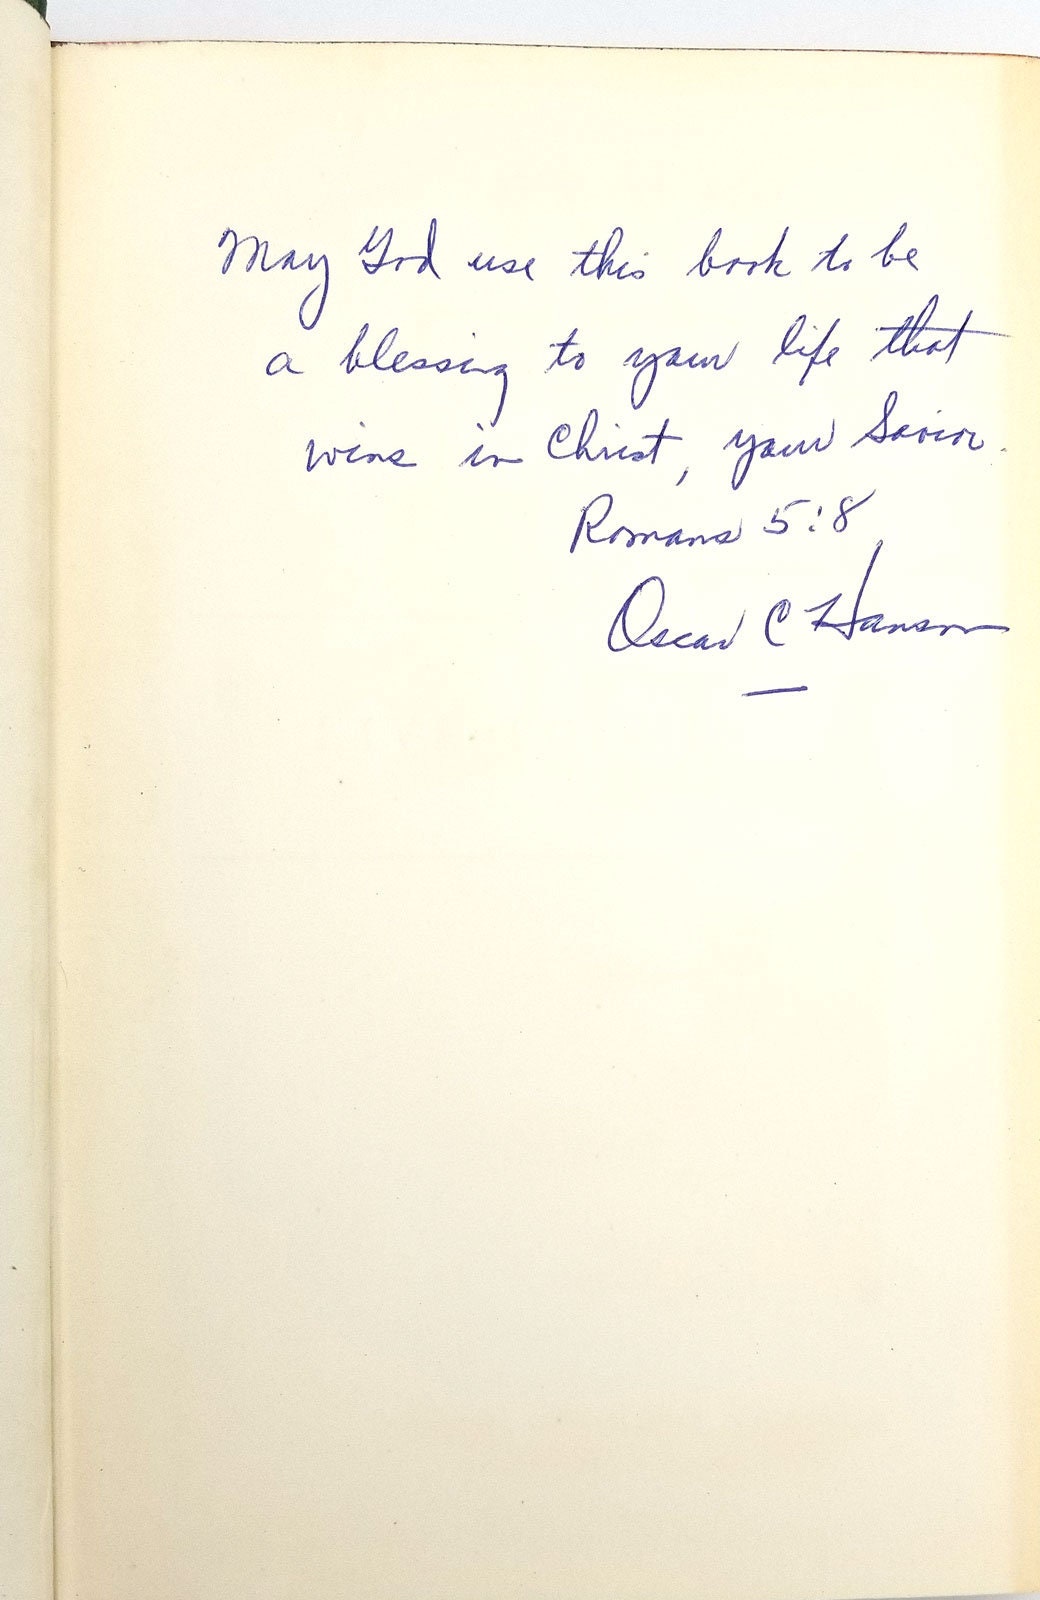 May God use this book to be
a blessing to your life that
wins in Christ, your Savior.
Romans 5:8
Oscar C Hanson